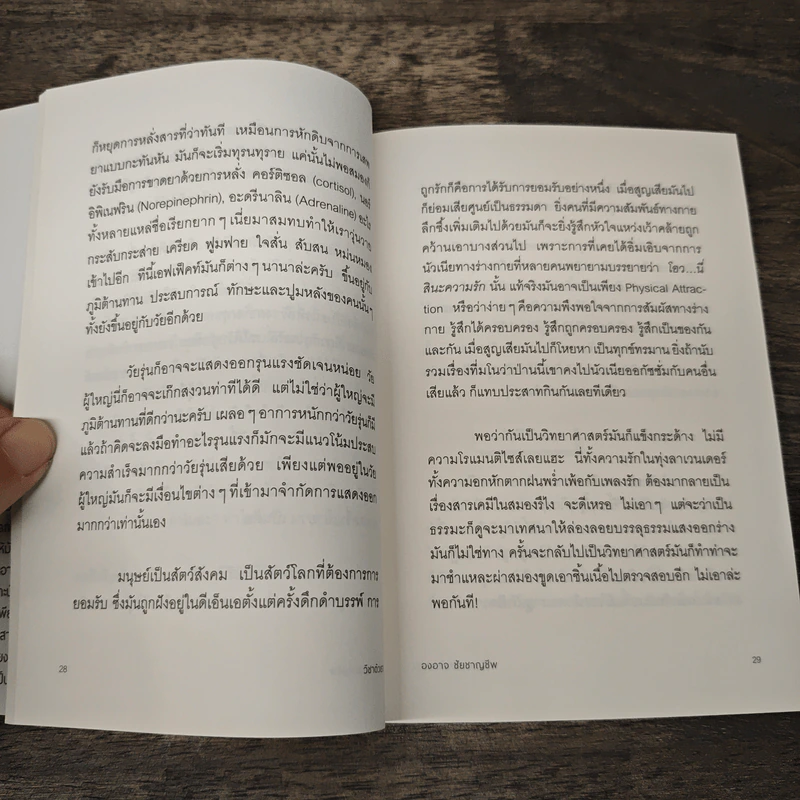 ก็หยุดการหลั่งสารที่ว่าทันที เหมือนการหักดิบจากการเสพ
ยาแบบกะทันหัน มันก็จะเริ่มทุรนทุราย แค่นั้นไม่พอสมองก็
ยังรับมือการขาดยาด้วยการหลั่ง คอร์ติซอล (cortisol), นอร์
อิพิเนฟริน (Norepinephrin), อะดรีนาลิน (Adrenaline) อะไร
ทั้งหลายแหล่ชื่อเรียกยากๆ เนี่ยมาสมทบทำให้เราวุ่นวาย
กระสับกระส่าย เครียด ฟูมฟาย ใจสั่น สับสน หม่นหมอง
เข้าไปอีก ทีนี้เอฟเฟ็คท์มันก็ต่างๆ นานาล่ะครับ ขึ้นอยู่กับ
ภูมิต้านทาน ประสบการณ์ ทักษะและปูมหลังของคนนั้นๆ
ทั้งยังขึ้นอยู่กับวัยอีกด้วย
วัยรุ่นก็อาจจะแสดงออกรุนแรงชัดเจนหน่อย วัย
ผู้ใหญ่นี่ก็อาจจะเก๊กสงวนท่าทีได้ดี แต่ไม่ใช่ว่าผู้ใหญ่จะมี
ภูมิต้านทานที่ดีกว่านะครับ เผลอๆ อาการหนักกว่าวัยรุ่นก็มี
แล้วถ้าคิดจะลงมือทำอะไรรุนแรงก็มักจะมีแนวโน้มประสบ
ความสำเร็จมากกว่าวัยรุ่นเสียด้วย เพียงแต่พออยู่ในวัย
ผู้ใหญ่มันก็จะมีเงื่อนไขต่างๆ ที่เข้ามาจำกัดการแสดงออก
มากกว่าเท่านั้นเอง
มนุษย์เป็นสัตว์สังคม เป็นสัตว์โลกที่ต้องการการ
ยอมรับ ซึ่งมันถูกฝังอยู่ในดีเอ็นเอตั้งแต่ครั้งดึกดำบรรพ์ การ
28
ถูกรักก็คือการได้รับการยอมรับอย่างหนึ่ง เมื่อสูญเสียมันไป
ก็ย่อมเสียศูนย์เป็นธรรมดา ยิ่งคนที่มีความสัมพันธ์ทางกาย
ลึกซึ้งเพิ่มเติมไปด้วยมันก็จะยิ่งรู้สึกหัวใจแหว่งเว้าคล้ายถูก
คว้านเอาบางส่วนไป เพราะการที่เคยได้อิ่มเอิบจากการ
นัวเนียทางร่างกายที่หลายคนพยายามบรรยายว่า โอว...นี่
สินะความรัก นั้น แท้จริงมันอาจเป็นเพียง Physical Attrac-
tion หรือว่าง่ายๆ คือความพึงพอใจจากการสัมผัสทางร่าง
กาย รู้สึกได้ครอบครอง รู้สึกถูกครอบครอง รู้สึกเป็นของกัน
และกัน เมื่อสูญเสียมันไปก็โหยหา เป็นทุกข์ทรมาน ยิ่งถ้านับ
รวมเรื่องที่มโนว่าป่านนี้เขาคงไปนัวเนียออกัซซั่มกับคนอื่น
เสียแล้ว ก็แทบประสาทกินกันเลยทีเดียว
พอว่ากันเป็นวิทยาศาสตร์มันก็แข็งกระด้าง ไม่มี
ความโรแมนติไซส์เลยแฮะ นี่ทั้งความรักในทุ่งลาเวนเดอร์
ทั้งความอกหักตากฝนพร่ำเพ้อกับเพลงรัก ต้องมากลายเป็น
เรื่องสารเคมีในสมองรึไง จะดีเหรอ ไม่เอาๆ แต่จะว่าเป็น
ธรรมะก็ดูจะมาเทศนาให้ล่องลอยบรรลุธรรมแสงออกร่าง
มันก็ไม่ใช่ทาง ครั้นจะกลับไปเป็นวิทยาศาสตร์มันก็ทำท่าจะ
มาชำแหละผ่าสมองขูดเอาชิ้นเนื้อไปตรวจสอบอีก ไม่เอาล่ะ
พอกันที!
องอาจ ชัยชาญชีพ
29